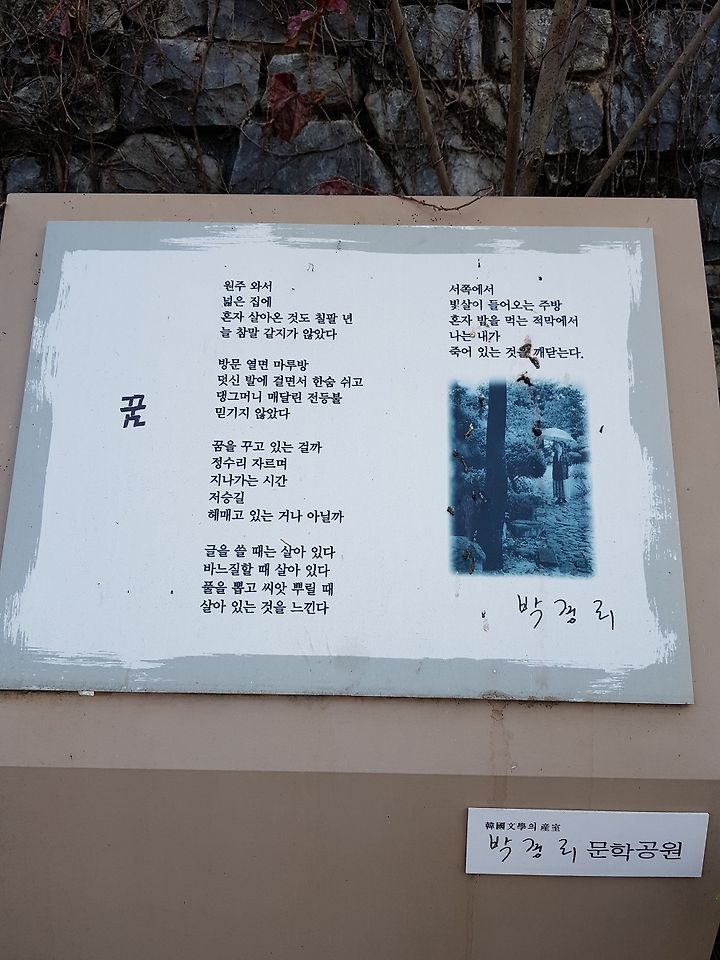 꿈
원주 와서
넓은 집에
혼자 살아온 것도 칠팔 년
늘 참말 같지가 않았다
방문 열면 마루방
덧신 발에 걸면서 한숨 쉬고
댕그머니 매달린 전등불
믿기지 않았다
꿈을 꾸고 있는 걸까
정수리 자르며
지나가는 시간
저승길
헤매고 있는 거나 아닐까
글을 쓸 때는 살아 있다
바느질할 때 살아 있다
풀을 뽑고 씨앗 뿌릴 때
살아 있는 것을 느낀다
서쪽에서
빛살이 들어오는 주방
혼자 밥을 먹는 적막에서
나는 내가
죽어 있는 것을 깨닫는다.
박경리
韓國文學의 産室
박경리 문학공원